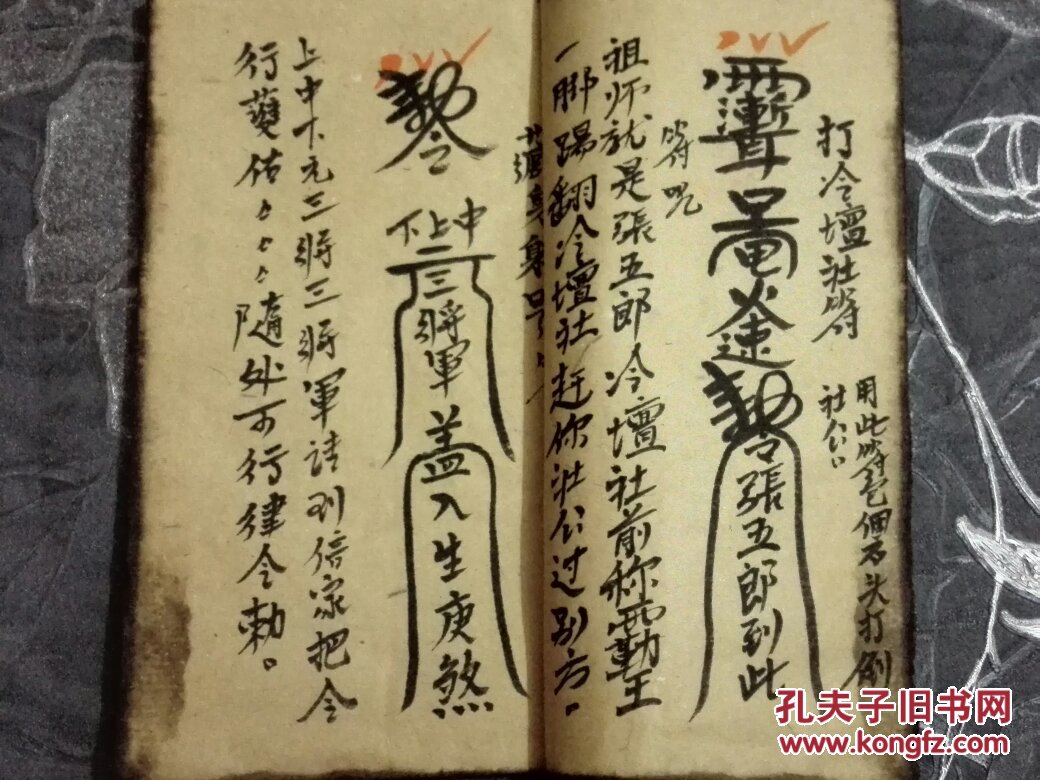 打冷壇社符
用此符包個石头打倒
社公
勅令張五郎到此
符咒
祖师就是張五郎冷壇社前称霸王
一脚踢翻冷壇社赶你社公过别方。
勅令
上中下
三將軍蓋入生庚煞
上中下元三將三將軍請到信家把令
行
随处可行律令勅。
孔夫子旧书网
www.kongfz.com